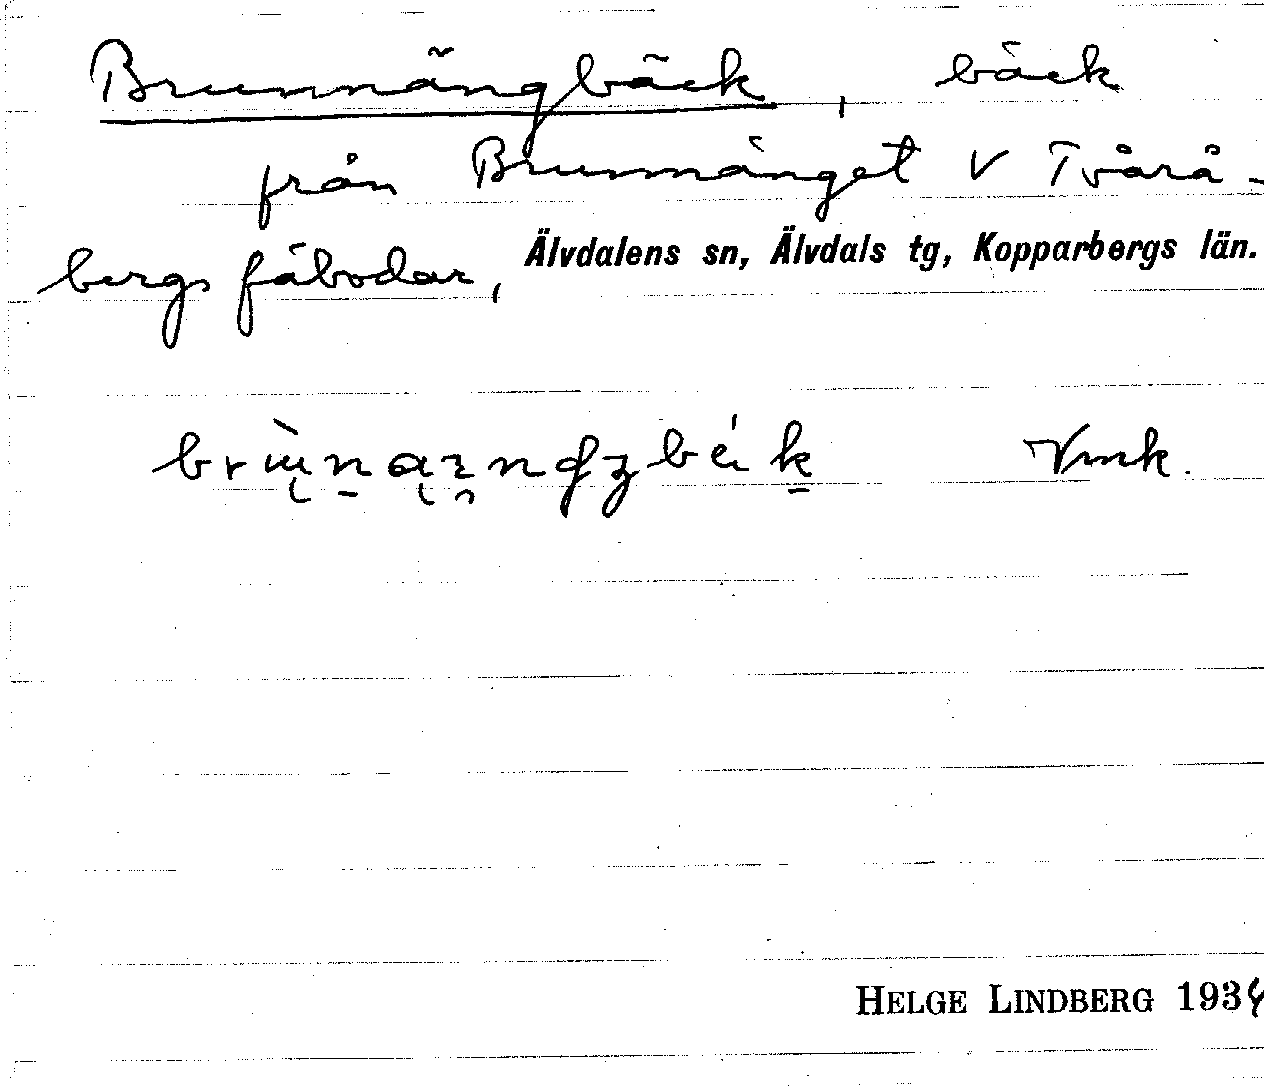 Brunnängbäck, bäck
från Brunnänget V Tvårå-
bergs fäbodar, Älvdalens sn, Älvdals tg, Kopparbergs län.
Vmk.
HELGE LINDBERG 1934